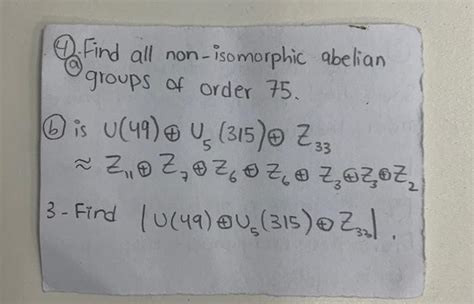 ④.Find all non-isomorphic abelian
ⓐ groups of order 75.
ⓑ is U(49)⊕U₅(315)⊕ Z₃₃
≈ Z₁₁⊕Z₇⊕Z₆⊕Z₆⊕Z₃⊕Z₃⊕Z₂
3-Find |U(49)⊕U₅(315)⊕Z₃₃|.